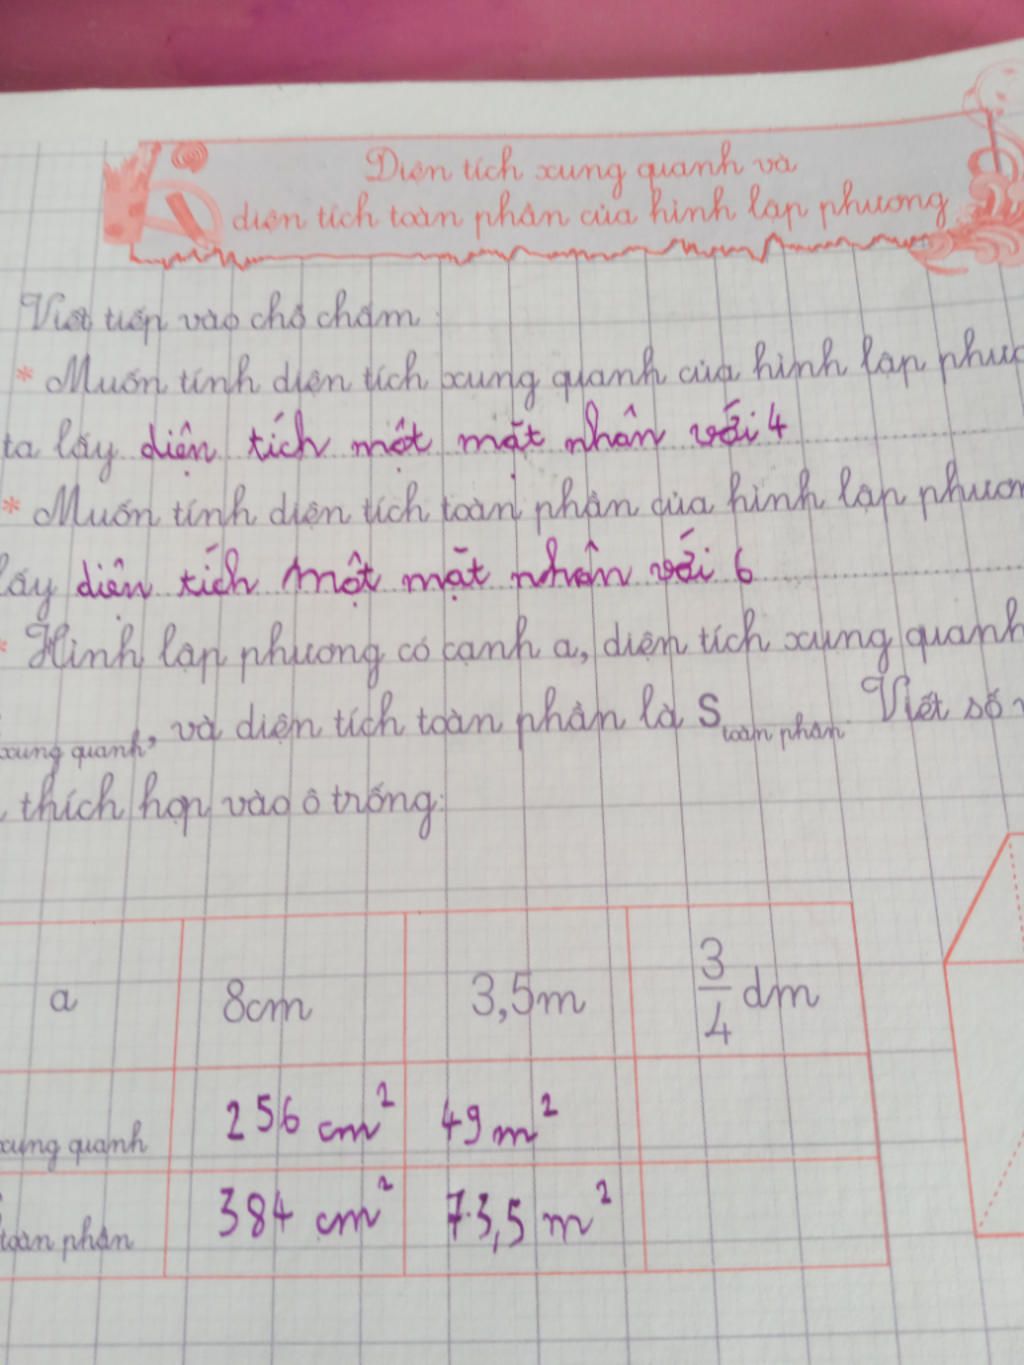 Diện tích xung quanh và
diện tích toàn phần của hình lập phương
Viết tiếp vào chỗ chấm:
* Muốn tính diện tích xung quanh của hình lập
ta lấy diện tích một mặt nhân với 4
* Muốn tính diện tích toàn phần của hình lập
lấy diện tích một mặt nhân với 6
* Hình lập phương có cạnh a, diện tích xung quanh
xung quanh, và diện tích toàn phần là S toàn phần. Viết số
thích hợp vào ô trống:
a 8cm 3,5m 3/4 dm
xung quanh 256 cm² 49 m²
toàn phần 384 cm² 73,5 m²